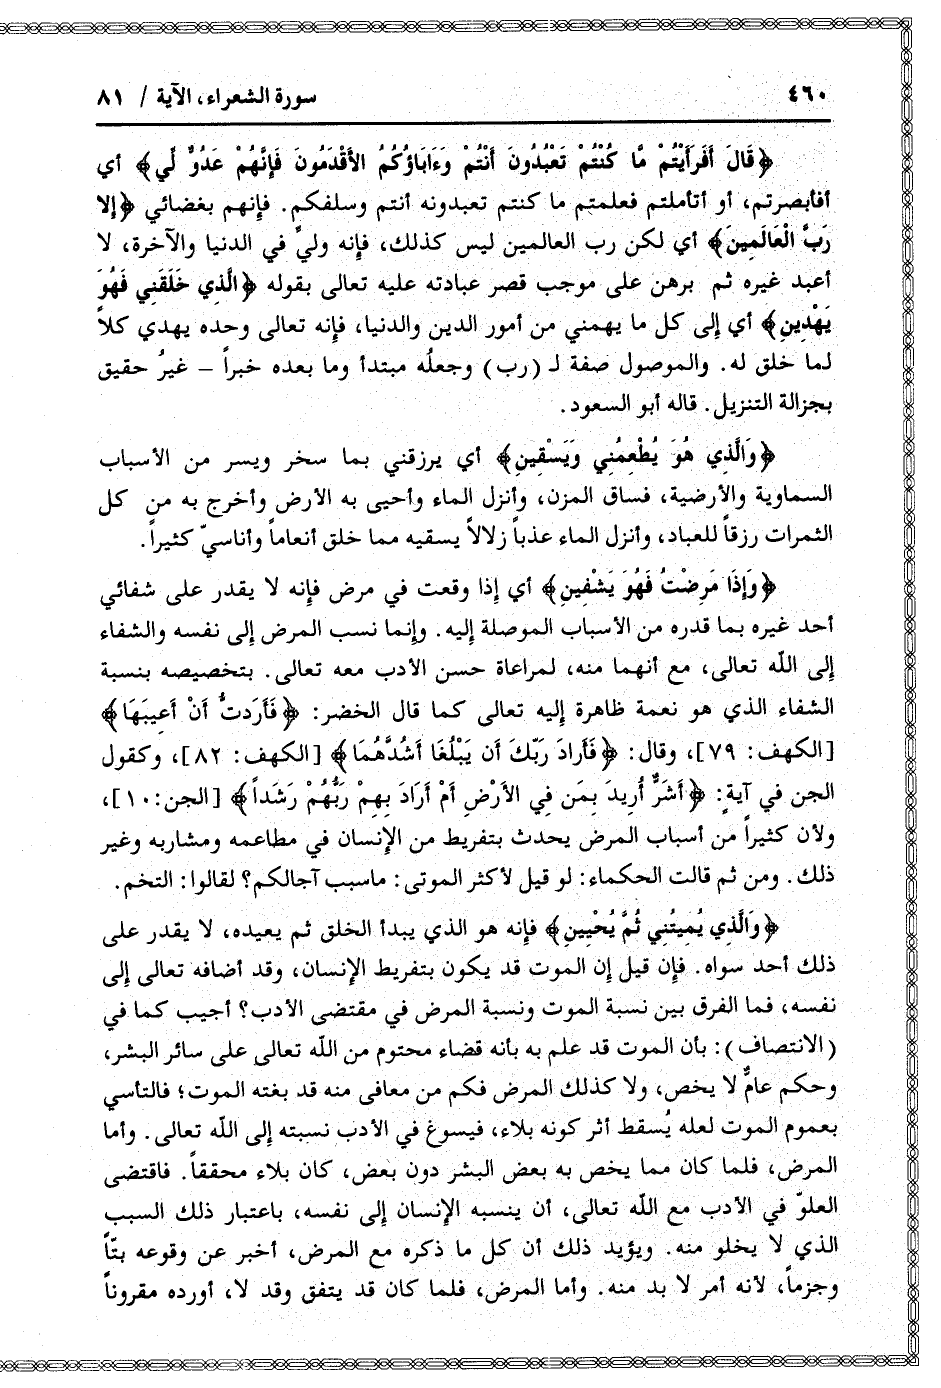 ٤٦٠ سورة الشعراء، الآية / ٨١
﴿قَالَ أَفَرَأَيْتُمْ مَّا كُنْتُمْ تَعْبُدُونَ أَنْتُمْ وَءَابَاؤُكُمُ الأَقْدَمُونَ فَإِنَّهُمْ عَدُوٌّ لِّي﴾ أي
أفأبصرتم، أو أتأملتم فعلمتم ما كنتم تعبدونه أنتم وسلفكم. فإنهم بغضائي ﴿إِلا
رَبَّ الْعَالَمِينَ﴾ أي لكن رب العالمين ليس كذلك، فإنه وليّ في الدنيا والآخرة، لا
أعبد غيره ثم برهن على موجب قصر عبادته عليه تعالى بقوله ﴿الَّذِي خَلَقَنِي فَهُوَ
يَهْدِينِ﴾ أي إلى كل ما يهمني من أمور الدين والدنيا، فإنه تعالى وحده يهدي كلاً
لما خلق له. والموصول صفة لـ (رب) وجعلُه مبتدأ وما بعده خبراً – غيرُ حقيق
بجزالة التنزيل. قاله أبو السعود.
﴿وَالَّذِي هُوَ يُطْعِمُنِي وَيَسْقِينِ﴾ أي يرزقني بما سخر ويسر من الأسباب
السماوية والأرضية، فساق المزن، وأنزل الماء وأحيى به الأرض وأخرج به من كل
الثمرات رزقاً للعباد، وأنزل الماء عذباً زلالاً يسقيه مما خلق أنعاماً وأناسيّ كثيراً.
﴿وَإِذَا مَرِضْتُ فَهُوَ يَشْفِينِ﴾ أي إذا وقعت في مرض فإنه لا يقدر على شفائي
أحد غيره بما قدره من الأسباب الموصلة إليه. وإنما نسب المرض إلى نفسه والشفاء
إلى اللّه تعالى، مع أنهما منه، لمراعاة حسن الأدب معه تعالى. بتخصيصه بنسبة
الشفاء الذي هو نعمة ظاهرة إليه تعالى كما قال الخضر: ﴿فَأَرَدتُّ أَنْ أَعِيبَهَا﴾
[الكهف: ٧٩]، وقال: ﴿فَأَرَادَ رَبُّكَ أَن يَبْلُغَا أَشُدَّهُمَا﴾ [الكهف: ٨٢]، وكقول
الجن في آيةٍ: ﴿أَشَرٌّ أُرِيدَ بِمَن فِي الأَرْضِ أَمْ أَرَادَ بِهِمْ رَبُّهُمْ رَشَداً﴾ [الجن:١٠]،
ولأن كثيراً من أسباب المرض يحدث بتفريط من الإنسان في مطاعمه ومشاربه وغير
ذلك. ومن ثم قالت الحكماء: لو قيل لأكثر الموتى: ماسبب آجالكم؟ لقالوا: التخم.
﴿وَالَّذِي يُمِيتُنِي ثُمَّ يُحْيِينِ﴾ فإنه هو الذي يبدأ الخلق ثم يعيده، لا يقدر على
ذلك أحد سواه. فإن قيل إن الموت قد يكون بتفريط الإنسان، وقد أضافه تعالى إلى
نفسه، فما الفرق بين نسبة الموت ونسبة المرض في مقتضى الأدب؟ أجيب كما في
(الانتصاف): بأن الموت قد علم به بأنه قضاء محتوم من اللّه تعالى على سائر البشر،
وحكم عامٌّ لا يخص، ولا كذلك المرض فكم من معافى منه قد بغته الموت؛ فالتأسي
بعموم الموت لعله يُسقط أثر كونه بلاء، فيسوغ في الأدب نسبته إلى اللّه تعالى. وأما
المرض، فلما كان مما يخص به بعض البشر دون بعض، كان بلاء محققاً. فاقتضى
العلوّ في الأدب مع اللّه تعالى، أن ينسبه الإنسان إلى نفسه، باعتبار ذلك السبب
الذي لا يخلو منه. ويؤيد ذلك أن كل ما ذكره مع المرض، أخبر عن وقوعه بتًّا
وجزماً، لأنه أمر لا بد منه. وأما المرض، فلما كان قد يتفق وقد لا، أورده مقروناً